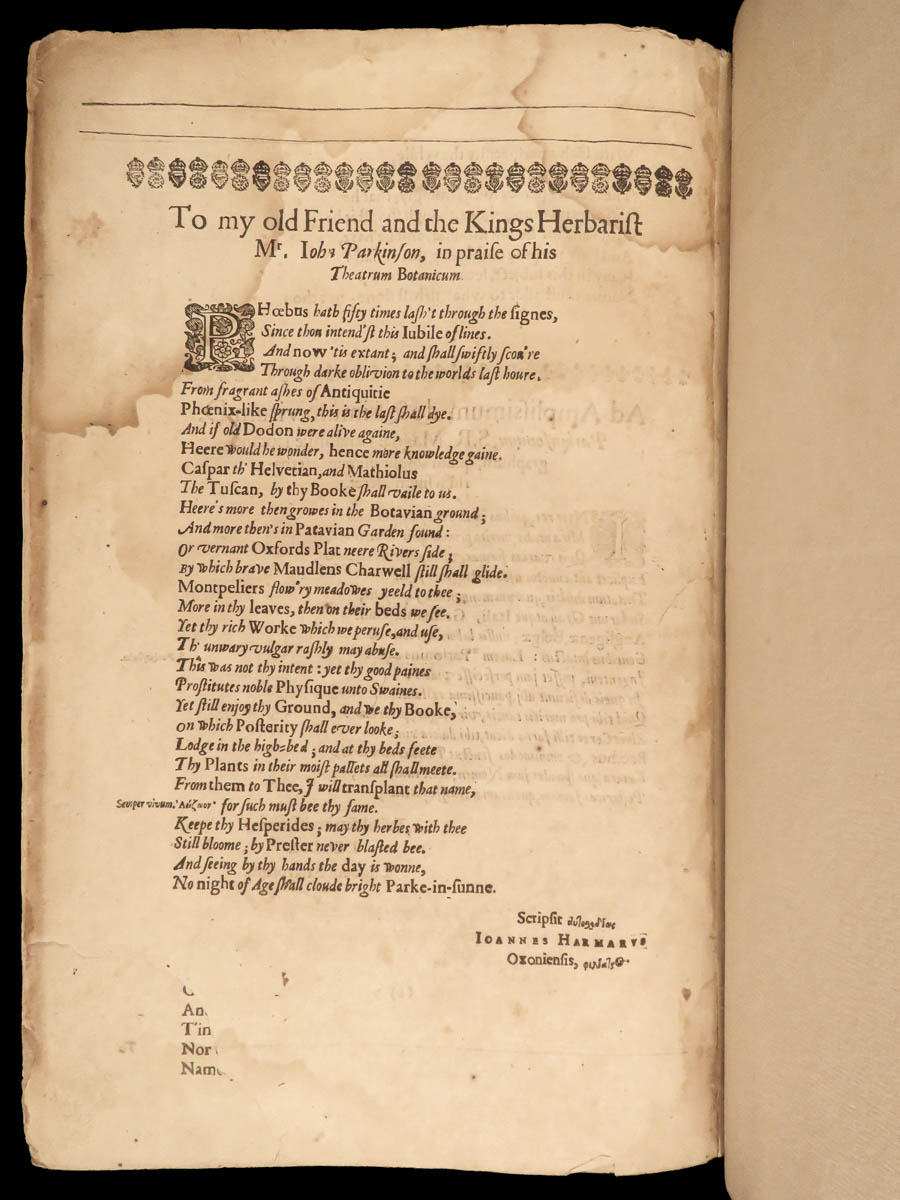 To my old Friend and the Kings Herbariſt
Mr. Iohn Parkinſon, in praiſe of his
Theatrum Botanicum.
PHœbus hath fifty times laſh't through the ſignes,
Since thou intend'ſt this Iubile of lines.
And now 'tis extant; and ſhall ſwiftly ſcou're
Through darke oblivion to the worlds laſt houre.
From fragrant aſhes of Antiquitie
Phœnix-like ſprung, this is the laſt ſhall dye.
And if old Dodon were alive againe,
Heere would he wonder, hence more knowledge gaine.
Caſpar th' Helvetian, and Mathiolus
The Tuſcan, by thy Booke ſhall vaile to us.
Heere's more then growes in the Botavian ground;
And more then's in Patavian Garden found:
Or vernant Oxfords Plat neere Rivers ſide;
By which brave Maudlens Charwell ſtill ſhall glide.
Montpeliers flow'ry meadowes yeeld to thee;
More in thy leaves, then on their beds we ſee.
Yet thy rich Worke which we peruſe, and uſe,
Th' unwary vulgar raſhly may abuſe.
This was not thy intent: yet thy good paines
Proſtitutes noble Phyſique unto Swaines.
Yet ſtill enjoy thy Ground, and we thy Booke,
On which Poſterity ſhall ever looke;
Lodge in the high-bed; and at thy beds feete
Thy Plants in their moiſt pallets all ſhall meete.
From them to Thee, I will tranſplant that name,
Semper vivum. for ſuch muſt bee thy fame.
Keepe thy Heſperides; may thy herbes with thee
Still bloome; by Preſter never blaſted bee.
And ſeeing by thy hands the day is wonne,
No night of Age ſhall cloude bright Parke-in-ſunne.
Scripſit
IOANNES HARMARVS
Oxonienſis,
An
T'in
Nor
Name